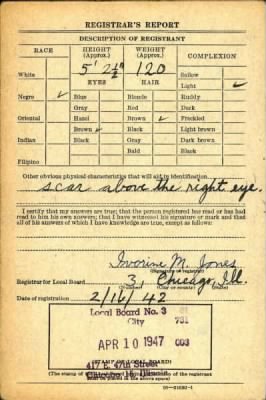 REGISTRAR'S REPORT
DESCRIPTION OF REGISTRANT
RACE HEIGHT (Approx.) WEIGHT (Approx.) COMPLEXION
5' 2½" 120
White EYES HAIR Sallow
Light ✓
Negro ✓ Blue Blonde Ruddy
Gray Red Dark
Oriental Hazel Brown ✓ Freckled
Brown ✓ Black Light brown
Indian Black Gray Dark brown
Bald Black
Filipino
Other obvious physical characteristics that will aid in identification
scar above the right eye.
I certify that my answers are true; that the person registered has read or has had
read to him his own answers; that I have witnessed his signature or mark and that
all of his answers of which I have knowledge are true, except as follows:
M. Jones
Registrar for Local Board 3 Chicago, Ill.
Date of registration 2/16/42
Local Board No. 3
City
APR 10 1947 003
(STAMP OF LOCAL BOARD)
417 E. 47th Street
Chicago, Illinois
(The stamp of the Local Board of the registrant
shall be placed in the above space)